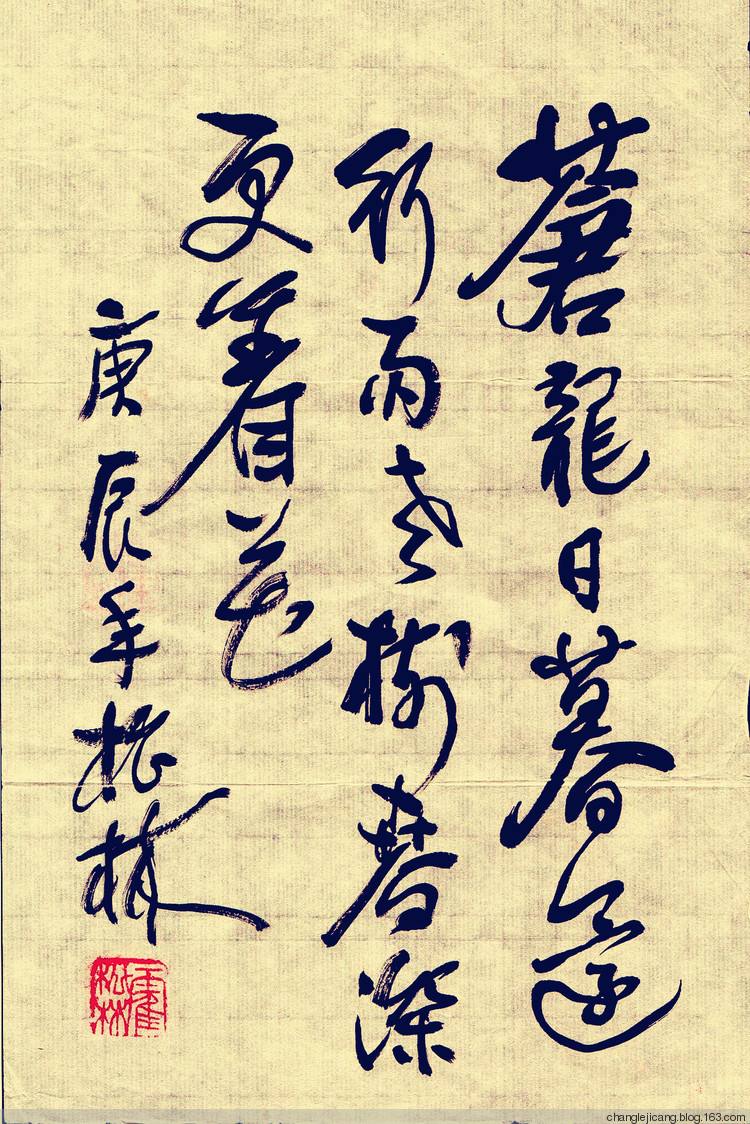 蒼龍日暮還
行雨老樹春深
更着花
庚辰年松林
霍松林
changlejicang.blog.163.com